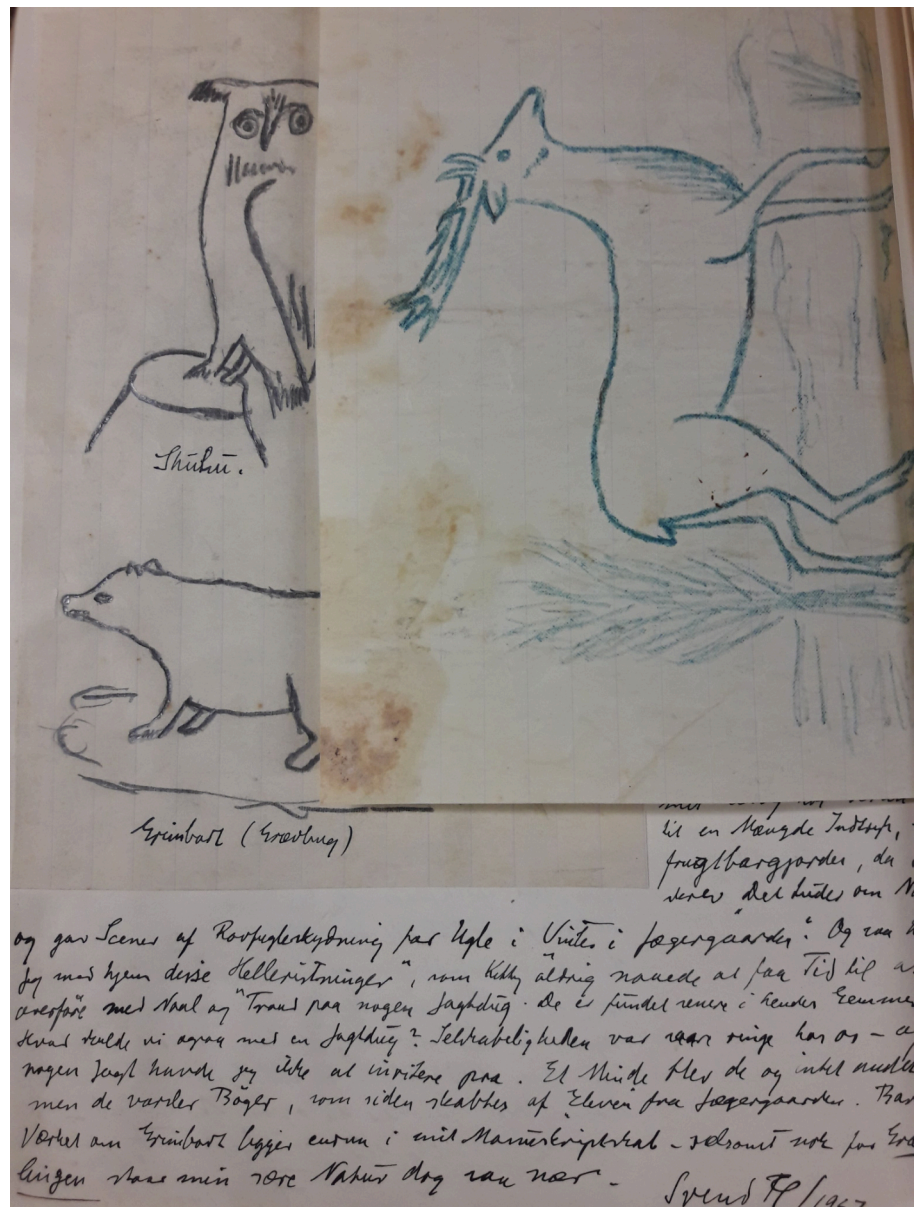 Shuhu.
Grimbart (Grævling)
til en Mængde Indtryk,
frugtbargjorder, da
Det tuder om
og gav Scener af Rovfugleskydning for Ugle i "Vinter i Jægergaarden". Og saa
jeg med hjem disse "Helleristninger", som Kitty aldrig naaede at faa Tid til
overføre med Naal og Traad paa nogen Jagtdug. De er fundet senere i hendes Gemmer
Hvad skulde vi ogsaa med en Jagtdug? Selskabeligheden var ringe hos os -
nogen Jagt havde jeg ikke at invitere paa. Et Minde blev de og intet andet
men de varsler Bøger, som siden skabtes af Eleven fra Jægergaarden.
Værket om Grimbart ligger endnu i mit Manuskriptskab - selsomt nok for
lingen staar min sære Natur dog saa nær -
Svend Fl /